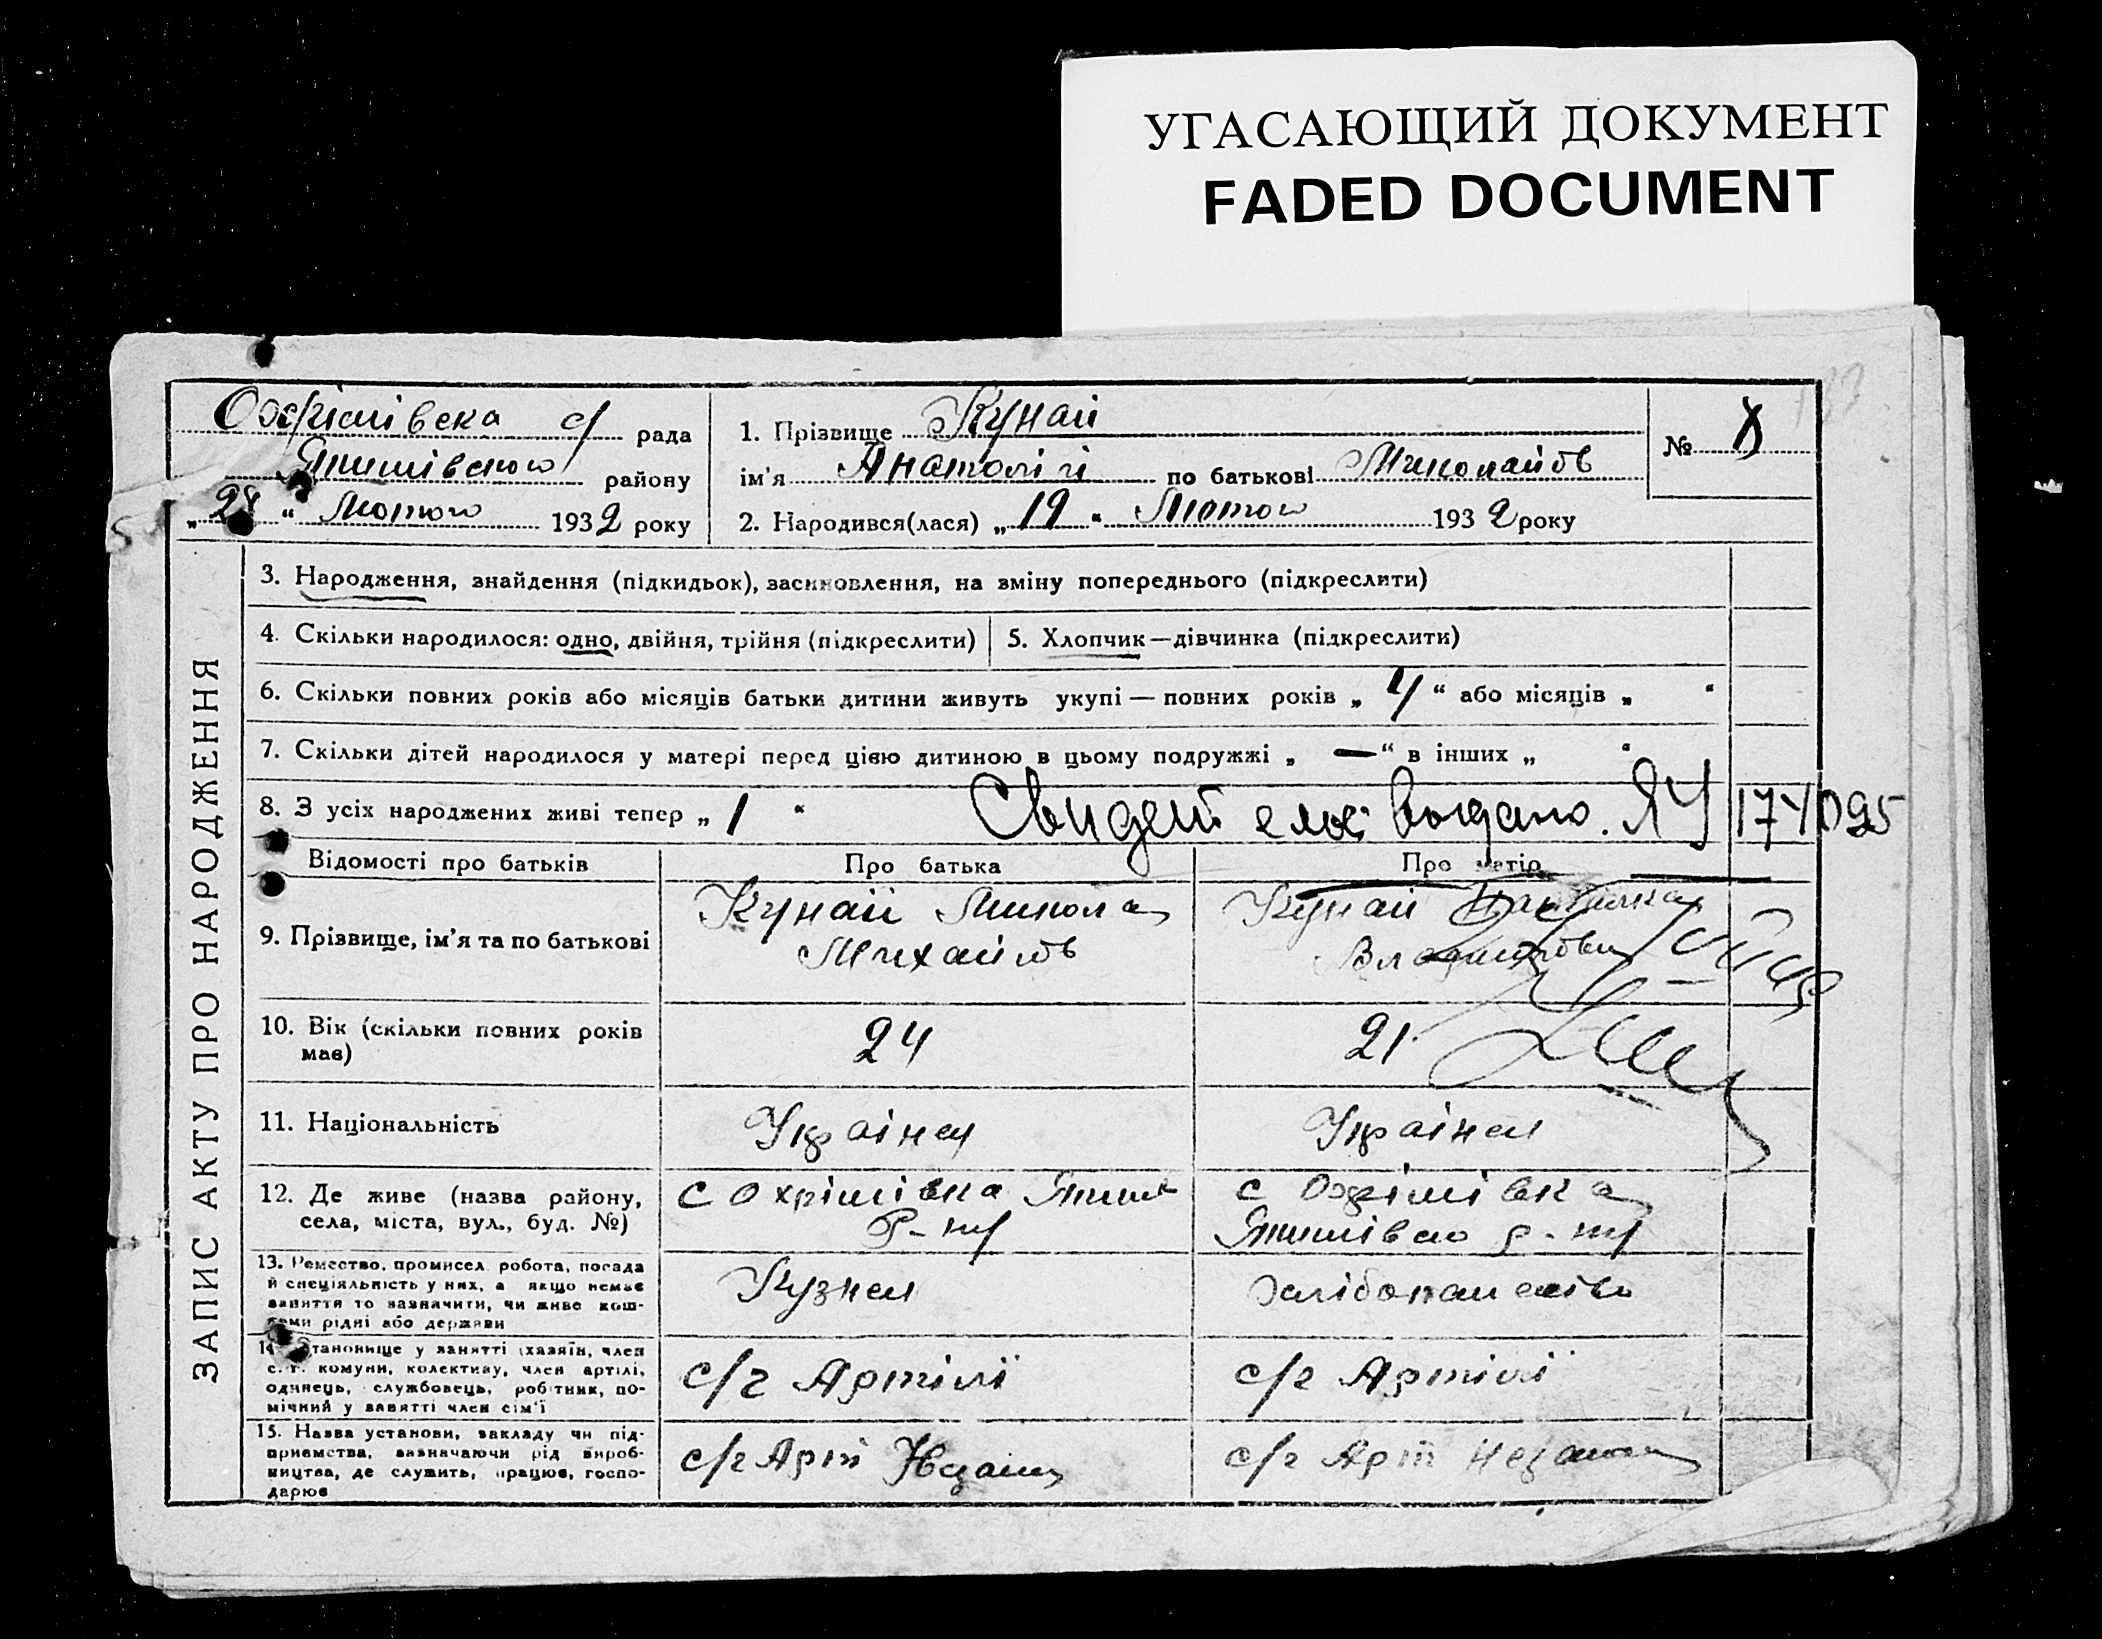 УГАСАЮЩИЙ ДОКУМЕНТ
FADED DOCUMENT
Охрімівска с/ рада
району
„ 28 “ Лютого 1932 року
1. Прізвище Кунай
ім'я Анатолій по батькові Миколайов
№
2. Народився(лася) „ 19 “ Лютого 1932 року
ЗАПИС АКТУ ПРО НАРОДЖЕННЯ
3. Народження, знайдення (підкидьок), засиновлення, на зміну попереднього (підкреслити)
4. Скільки народилося: одно, двійня, трійня (підкреслити)
5. Хлопчик—дівчинка (підкреслити)
6. Скільки повних років або місяців батьки дитини живуть укупі — повних років „ 4 “ або місяців „ “
7. Скільки дітей народилося у матері перед цією дитиною в цьому подружжі „ — “ в інших „ “
8. З усіх народжених живі тепер „ 1 “
выдано. ЯУ 174095
Відомості про батьків
Про батька
Про матір
9. Прізвище, ім'я та по батькові
Кунай Микола
Михайлов
Кунай
10. Вік (скільки повних років
має)
24
21
11. Національність
Українец
Українец
12. Де живе (назва району,
села, міста, вул., буд. №)
с Охрімівка
Р-ну
с Охрімівка
р-ну
13. Ремество, промисел, робота, посада
й спеціяльність у них, а якщо немає
заняття то зазначити, чи живе кош-
тами рідні або держави
Кузнец
14. Становище у занятті (хазяїн, член
с.-г. комуни, колективу, член артілі,
одинець, службовець, робітник, по-
мічний у занятті член сім'ї
с/г Артілі
с/г Артілі
15. Назва установи, закладу чи під-
приємства, зазначаючи рід вироб-
ництва, де служить, працює, госпо-
дарює
с/г Арт
с/г Арт